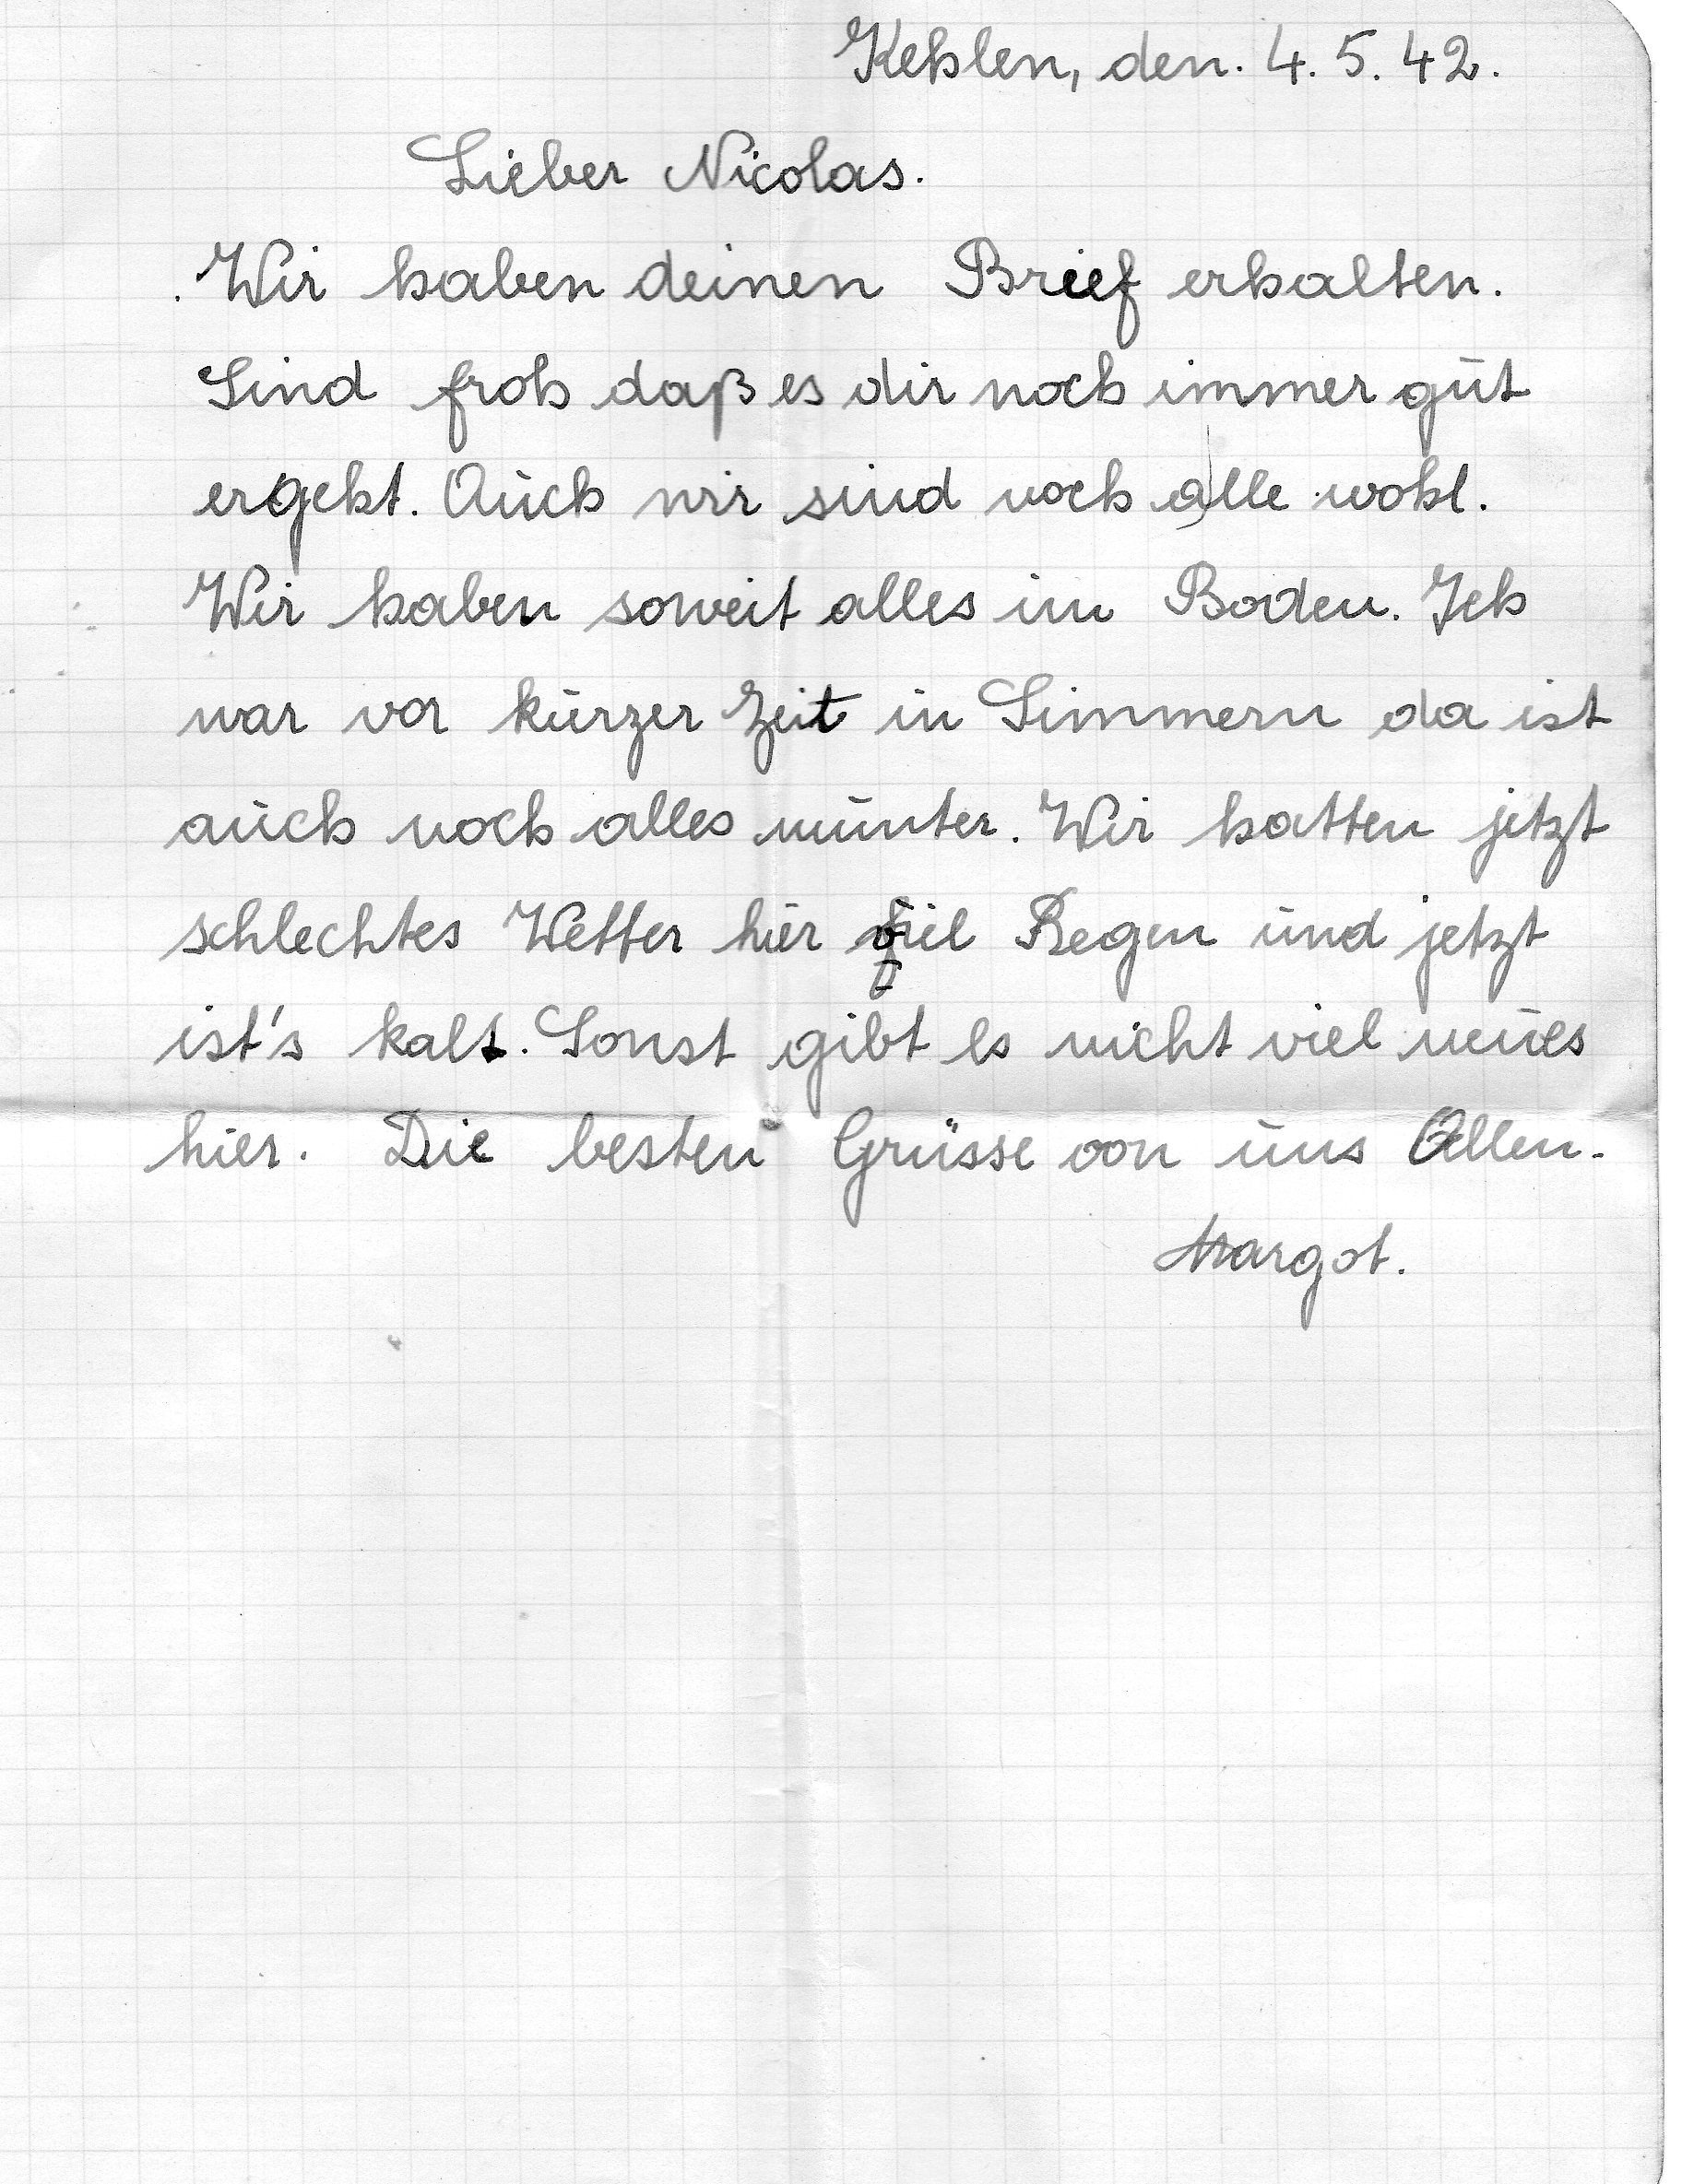 Kehlen, den. 4. 5. 42.
Lieber Nicolas.
Wir haben deinen Brief erhalten.
Sind froh daß es dir noch immer gut
ergeht. Auch wir sind noch alle wohl.
Wir haben soweit alles im Boden. Ich
war vor kurzer Zeit in Simmern da ist
auch noch alles munter. Wir hatten jetzt
schlechtes Wetter hier viel Regen und jetzt
ist's kalt. Sonst gibt es nicht viel neues
hier. Die besten Grüsse von uns Allen.
Margot.